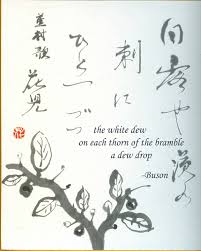 白露や茨の
刺に
ひとつづつ
蕪村
the white dew
on each thorn of the bramble
a dew drop
-Buson